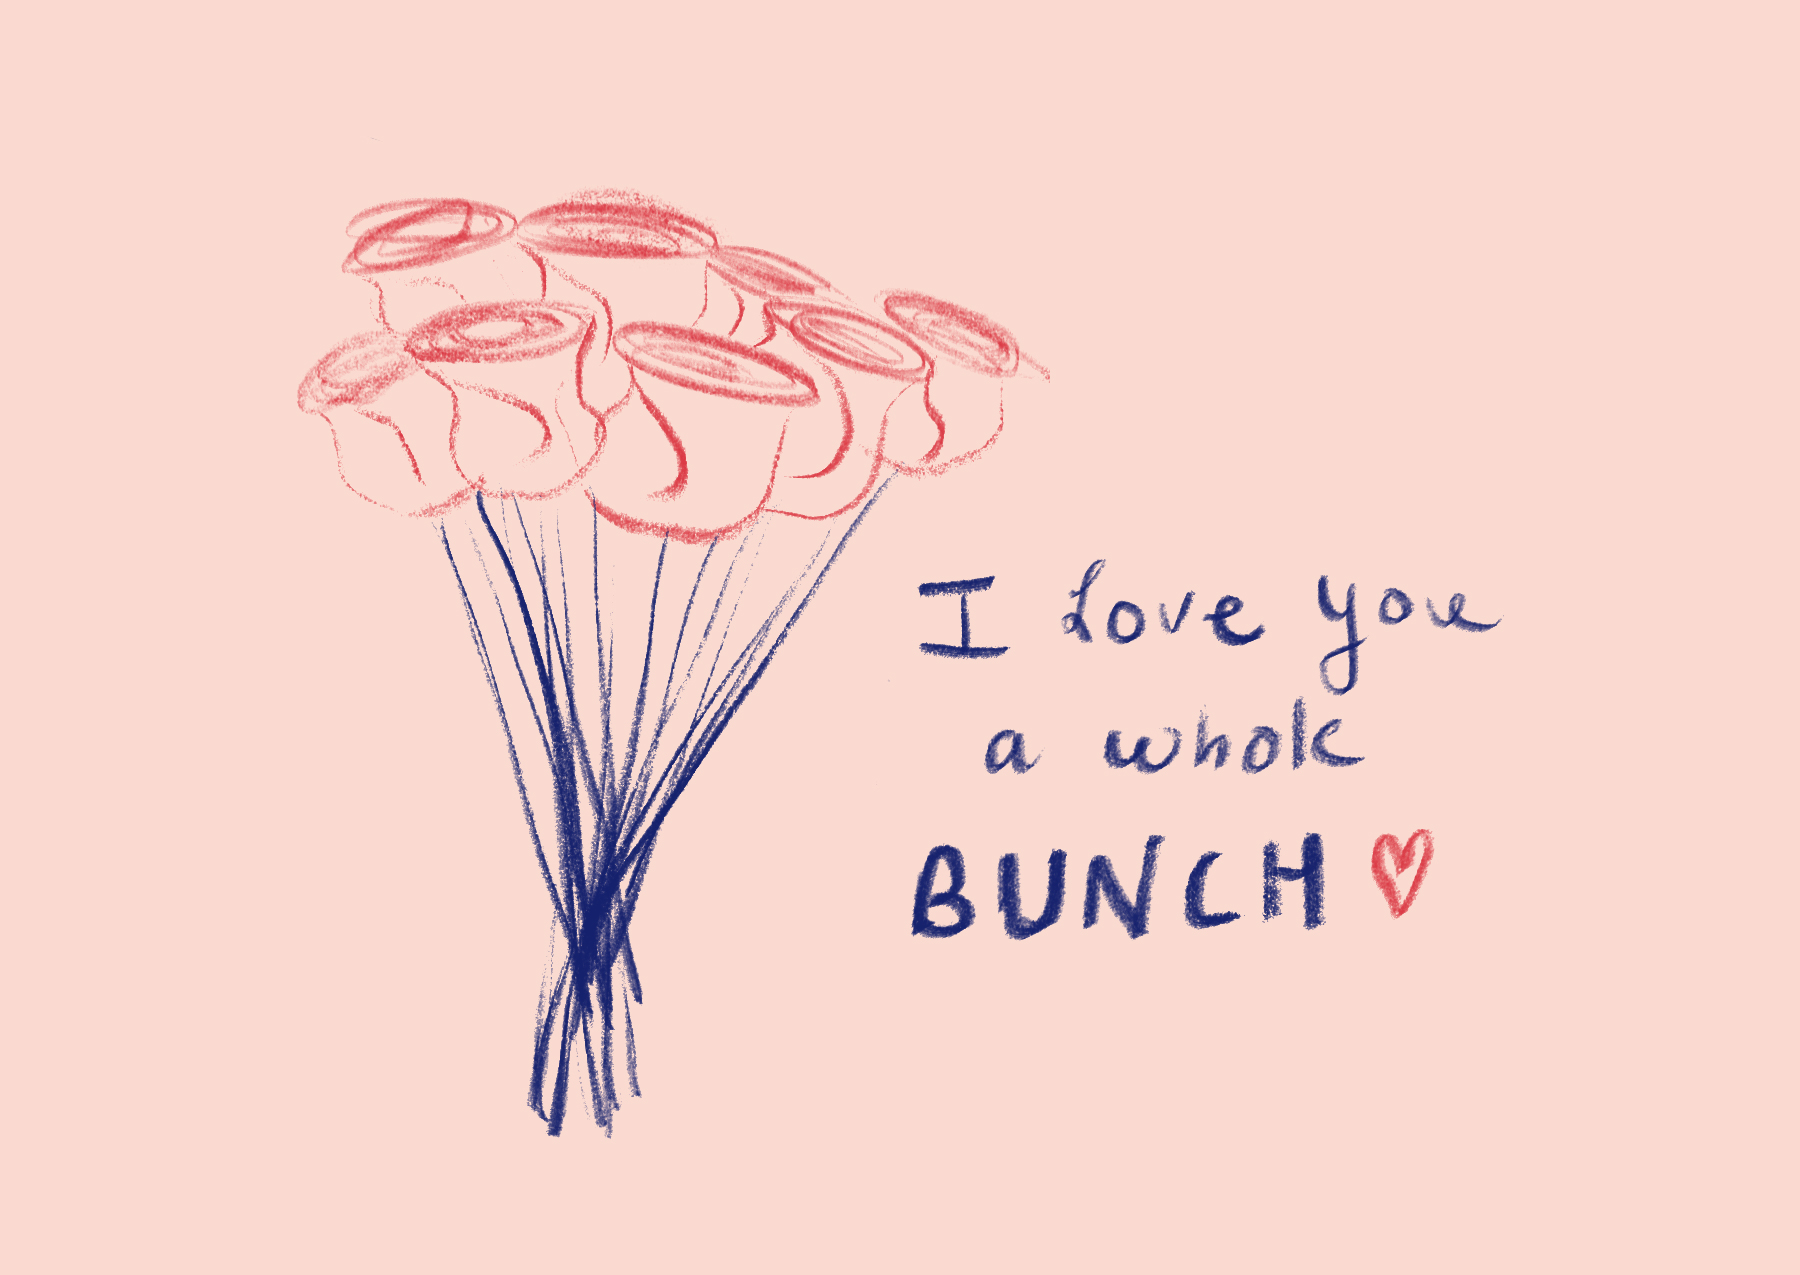 I love you
a whole
BUNCH ♡